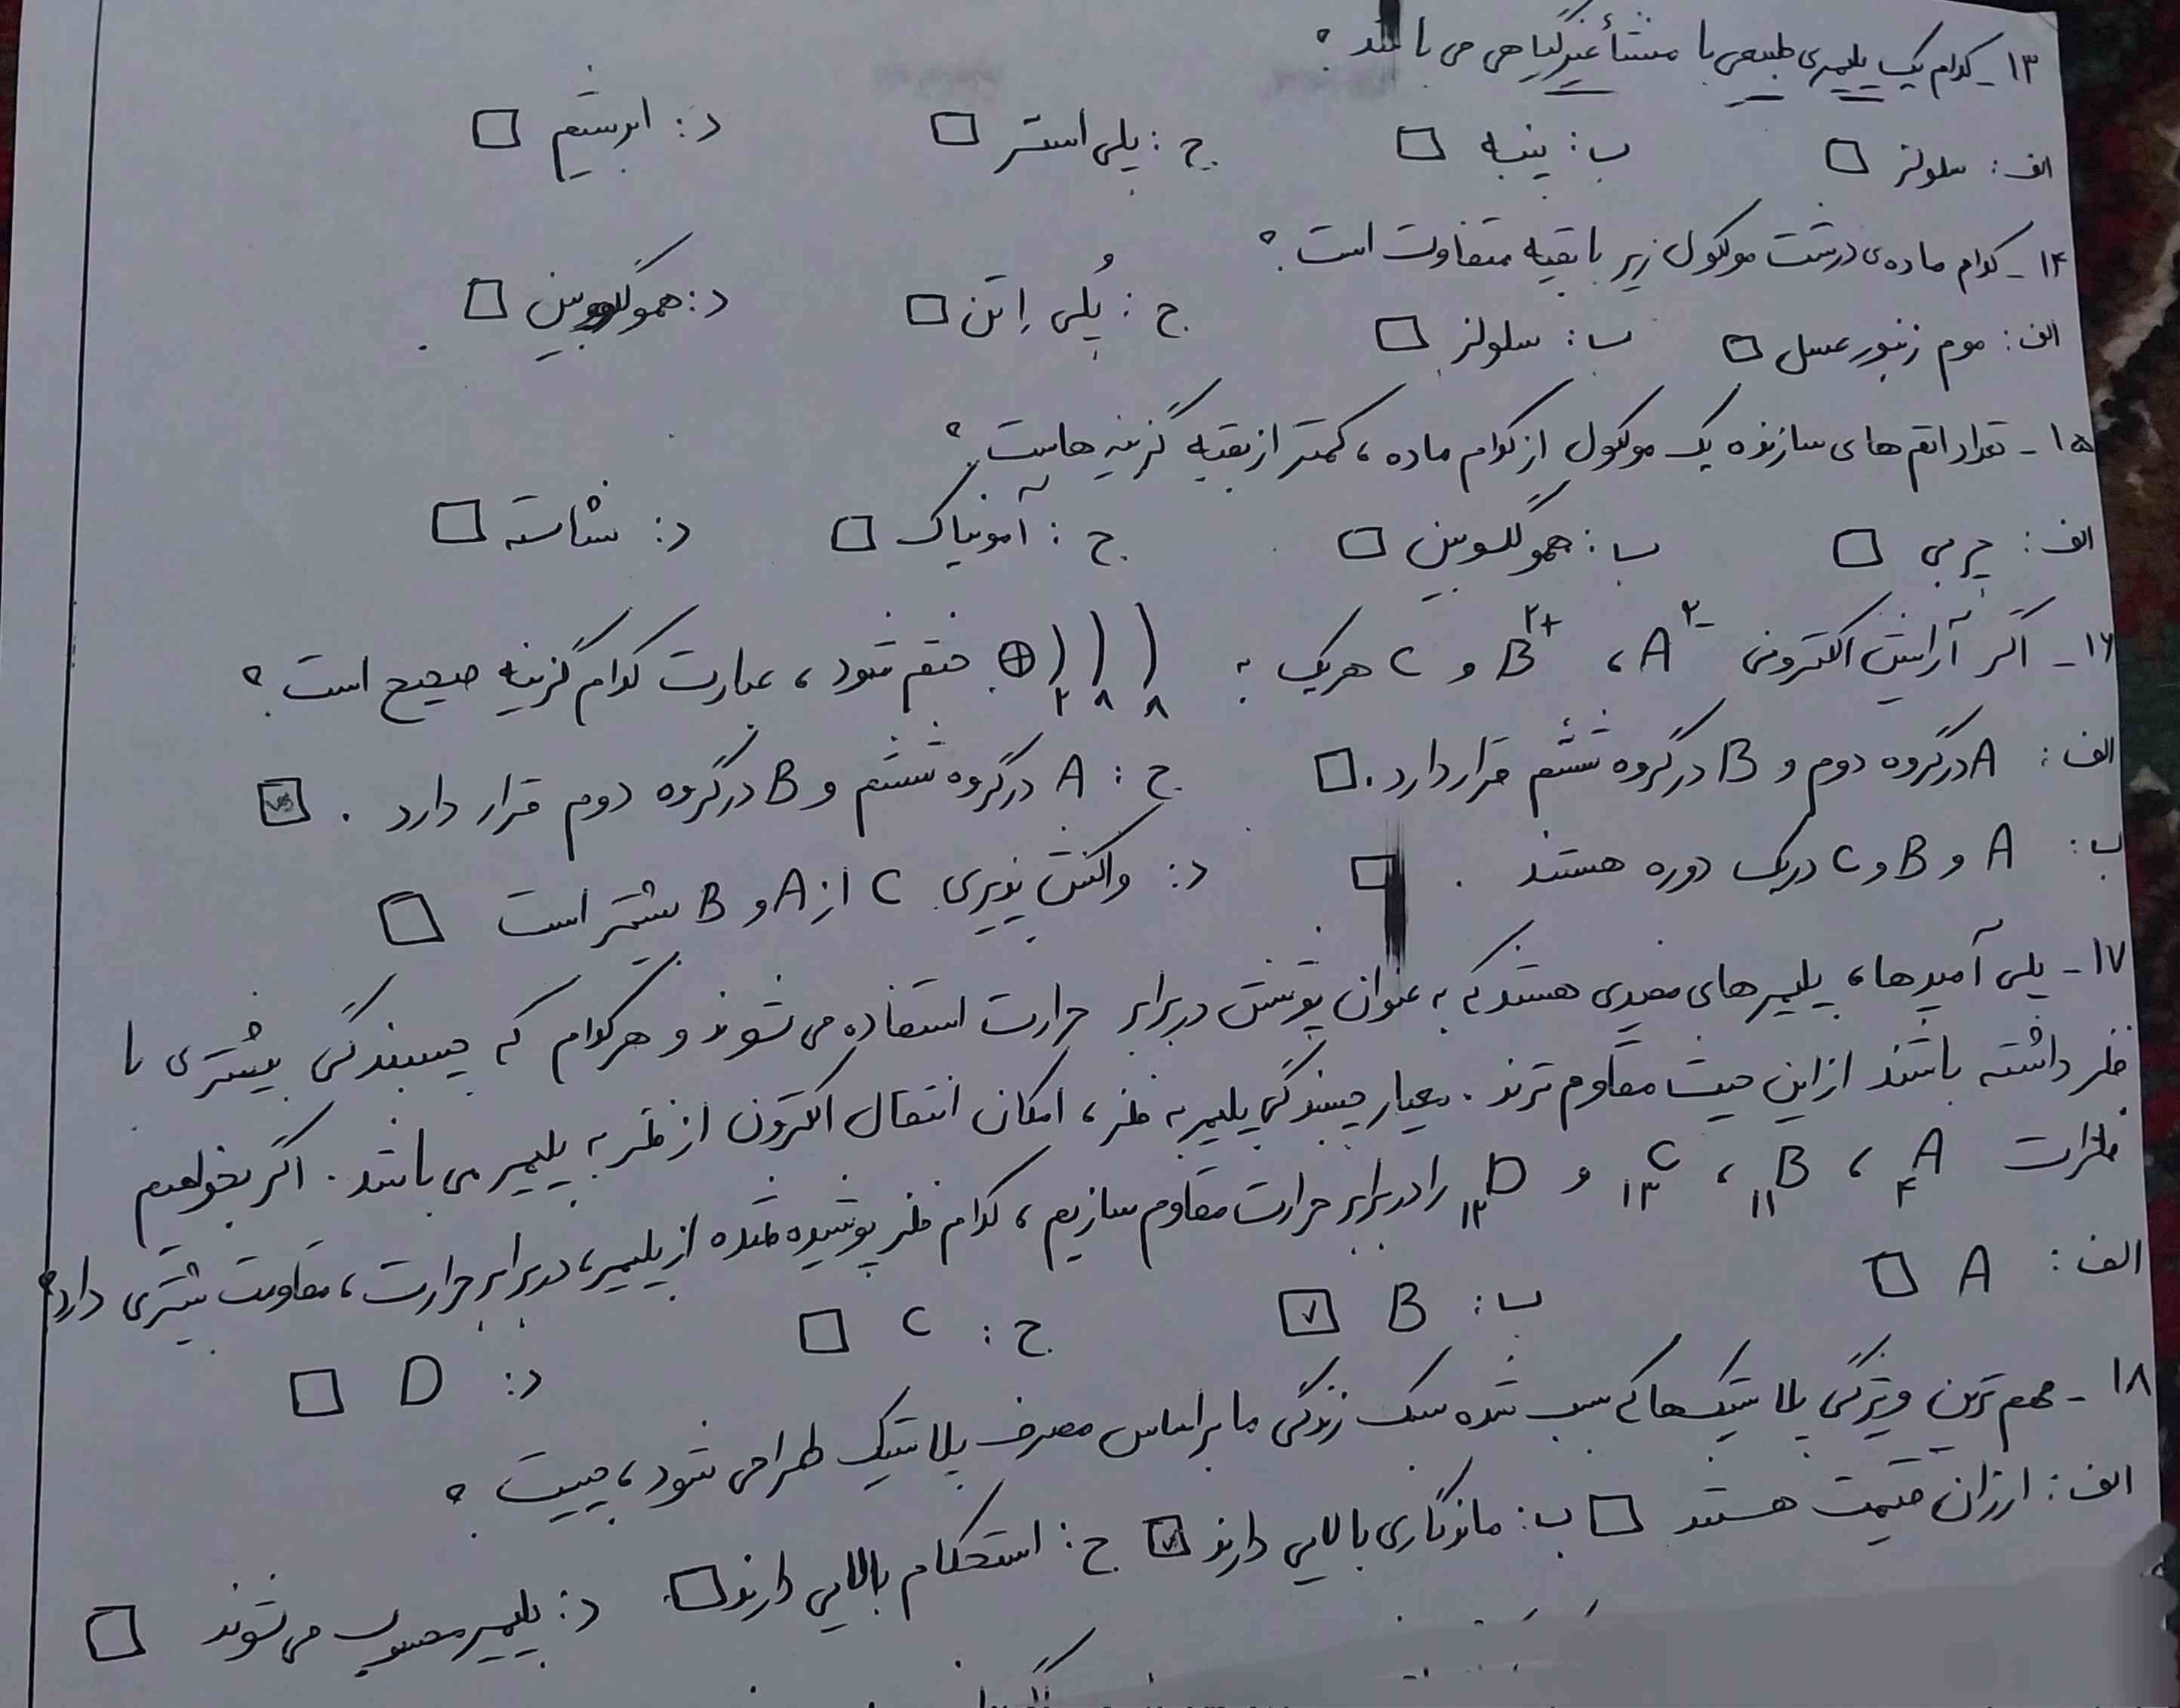 ۱۳- کدام یک پلیمری طبیعی با منشأ غیرگیاهی می باشد ؟
الف: سلولز □ ب: پنبه □ ج: پلی استر □ د: ابریشم □
۱۴- کدام ماده‌ی درشت مولکول زیر با بقیه متفاوت است ؟
الف: موم زنبور عسل □ ب: سلولز □ ج: پُلی اِتن □ د: هموگلوبین □
۱۵- تعداد اتم های سازنده یک مولکول از کدام ماده ، کمتر از بقیه گزینه هاست ؟
الف: چربی □ ب: هموگلوبین □ ج: آمونیاک □ د: نشاسته □
۱۶- اگر آرایش الکترونی A²⁻ ، B²⁺ و C هریک به ⊕)₂)₈)₈ ختم شود ، عبارت کدام گزینه صحیح است ؟
الف: A درگروه دوم و B درگروه ششم قرار دارد . □ ج: A درگروه ششم و B درگروه دوم قرار دارد . ☑
ب: A و B و C دریک دوره هستند . □ د: واکنش پذیری C از A و B بیشتر است □
۱۷- پلی آمیدها ، پلیمرهای مفیدی هستند که به عنوان پوشش در برابر حرارت استفاده می شوند و هرکدام که چسبندگی بیشتری با
فلز داشته باشند از این حیث مقاوم ترند . معیار چسبندگی پلیمر به فلز ، امکان انتقال الکترون از فلز به پلیمر می باشد . اگر بخواهیم
فلزات ₄A ، ₁₁B ، ₁₃C و ₁₂D را در برابر حرارت مقاوم سازیم ، کدام فلز پوشیده شده از پلیمر ، در برابر حرارت ، مقاومت بیشتری دارد ؟
الف: A □ ب: B ☑ ج: C □ د: D □
۱۸- مهم ترین ویژگی پلاستیک ها که سبب شده سبک زندگی ما براساس مصرف پلاستیک طراحی شود ، چیست ؟
الف: ارزان قیمت هستند □ ب: ماندگاری بالایی دارند ☑ ج: استحکام بالایی دارند □ د: پلیمر محسوب می شوند □